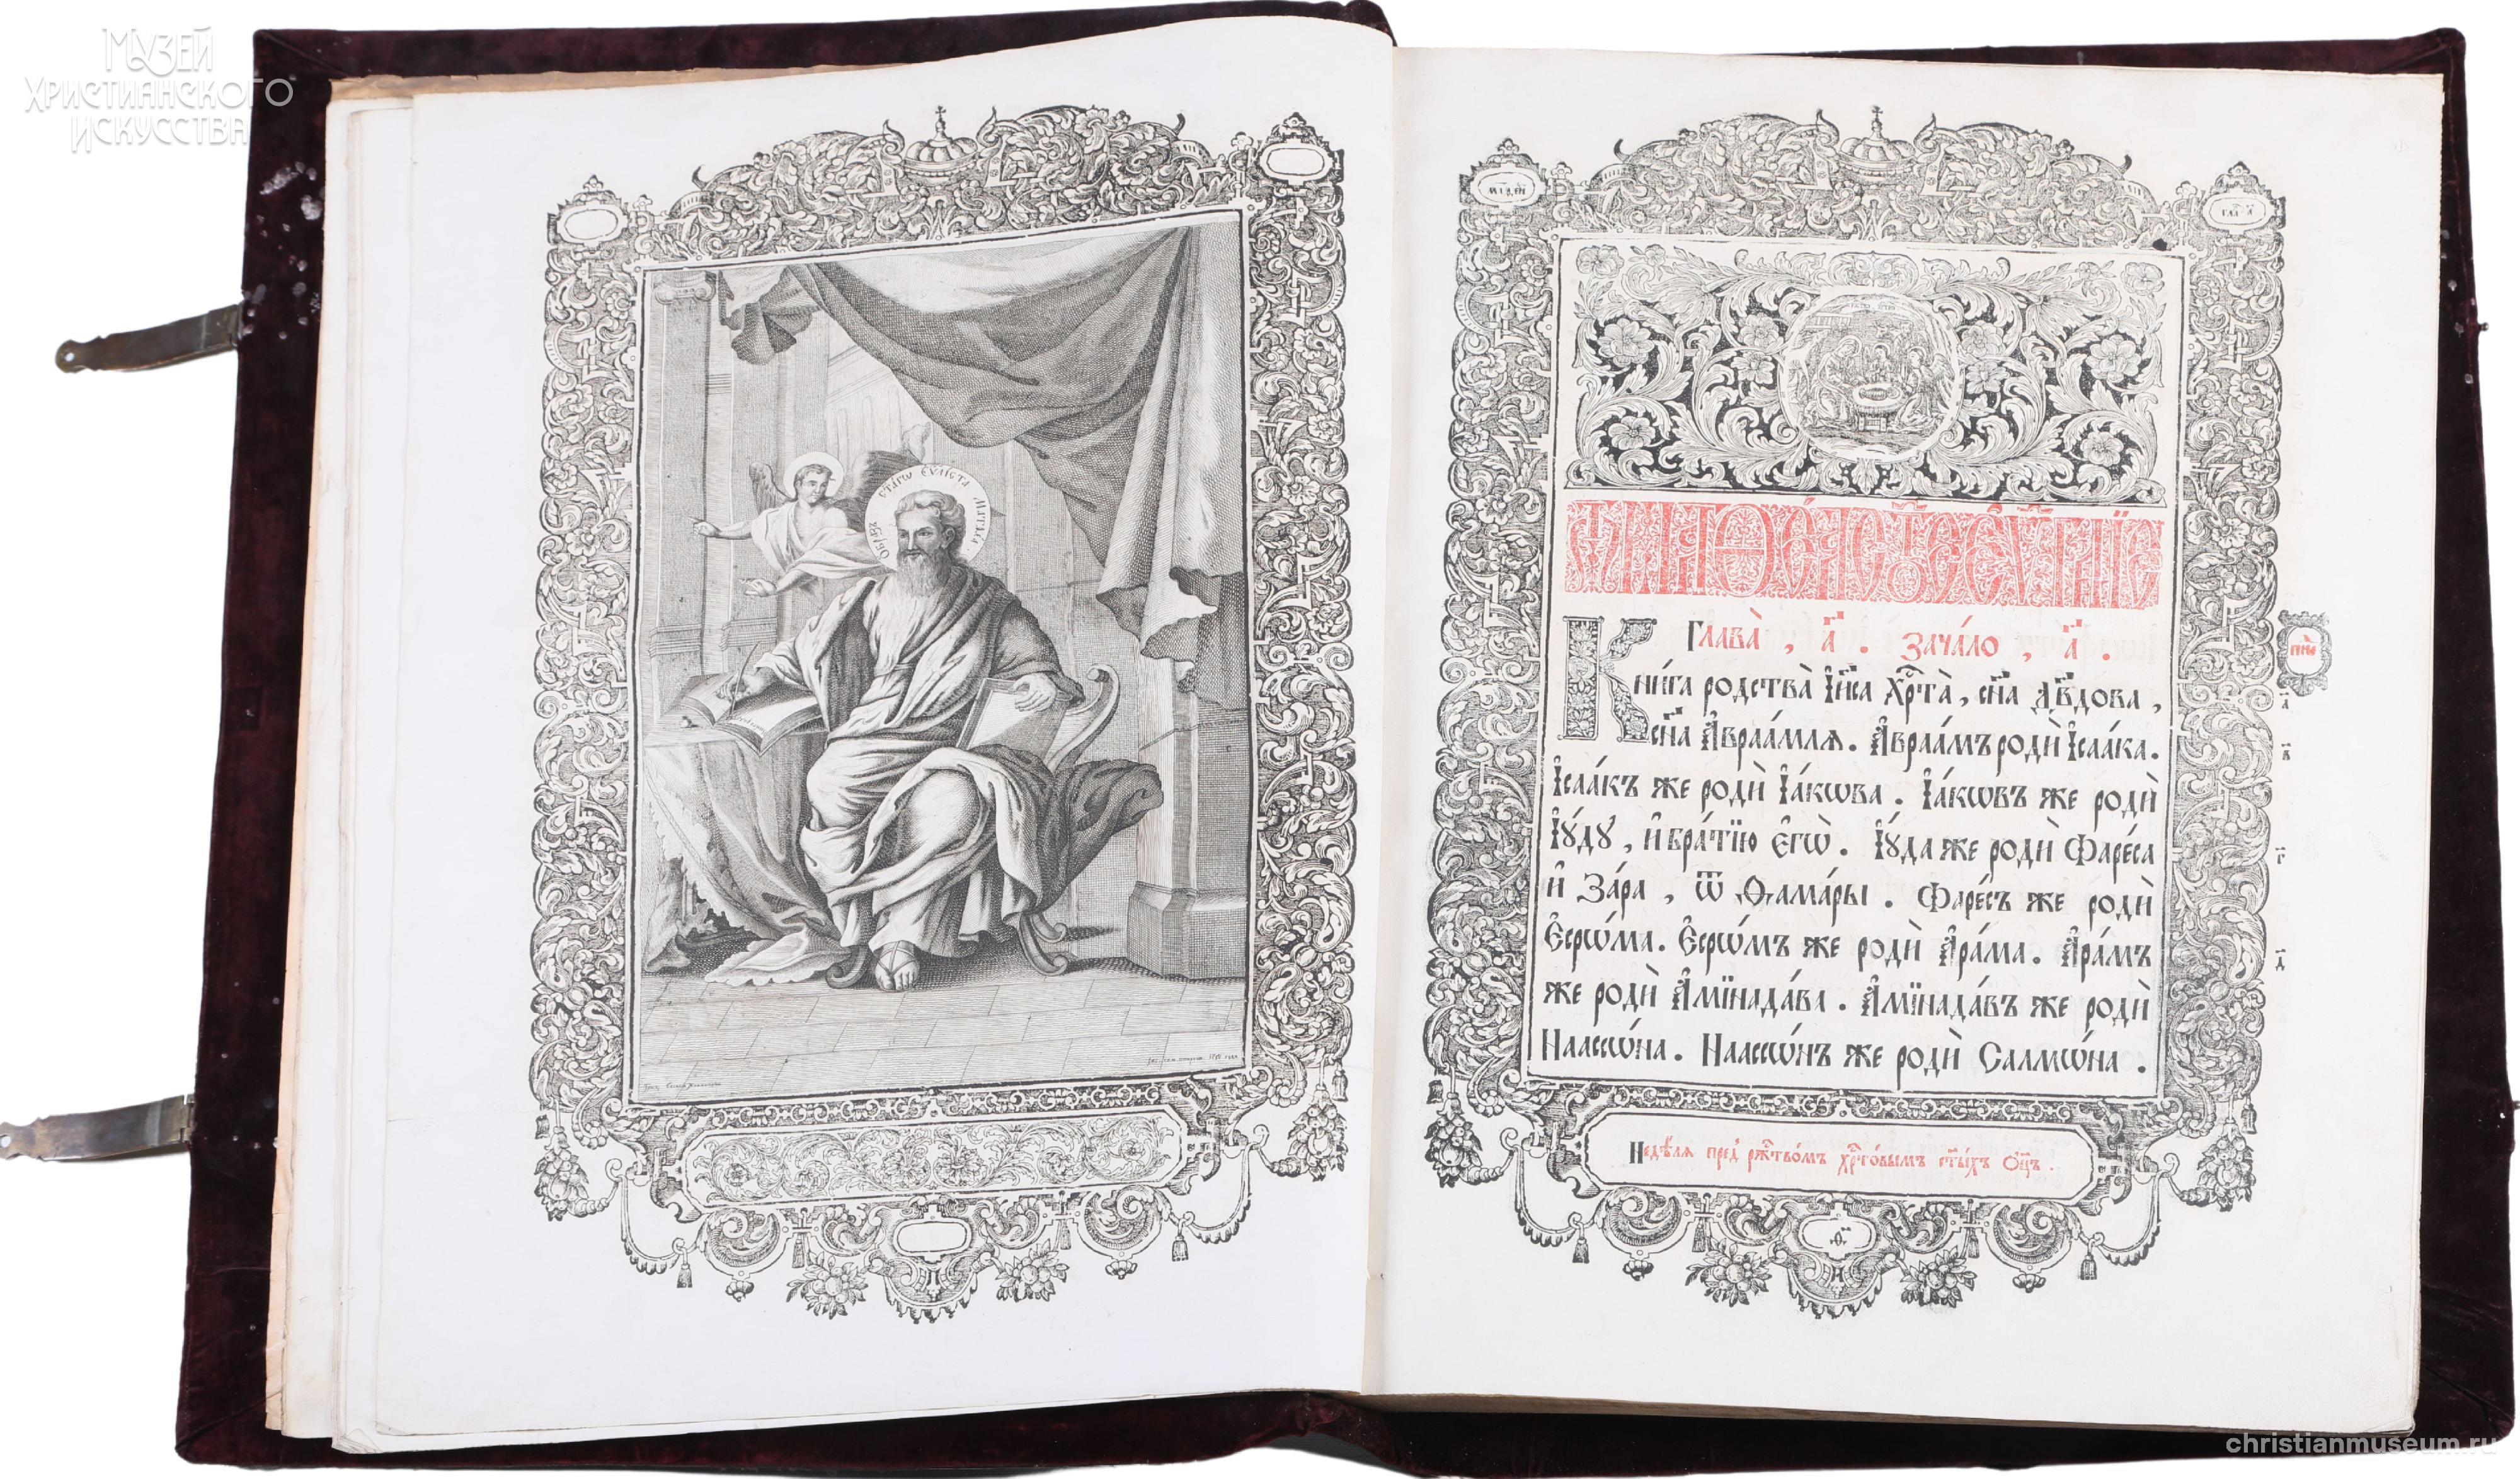 МУЗЕЙ
ХРИСТИАНСКОГО
ИСКУССТВА
Ѿ МАТѲЕ́А СТ҃О́Е ЕѴⷢ҇ЛІЕ
Глава̀ , а҃ . Зача́ло , а҃ .
Кни́га родства̀ І҆и҃са Хрⷭ҇та̀ , сн҃а Дв҃дова ,
сн҃а А҆враа́млѧ . А҆враа́мъ родѝ І҆саа́ка .
І҆саа́къ же родѝ І҆а́кѡва . І҆а́кѡвъ же родѝ
І҆ꙋ́дꙋ , и҆ бра́тїю є҆гѡ̀ . І҆ꙋ́да же родѝ Фаре́са
и҆ За́ра , ѿ Ѳама́ры . Фаре́съ же родѝ
Є҆срѡ́ма . Є҆срѡ́мъ же родѝ А҆ра́ма . А҆ра́мъ
же родѝ А҆мїнада́ва . А҆мїнада́въ же родѝ
Наассѡ́на . Наассѡ́нъ же родѝ Салмѡ́на .
а҃
в҃
г҃
д҃
Недѣ́лѧ пред̾ ржⷭ҇тво́мъ хрⷭ҇то́вымъ ст҃ы́хъ Ѻ҆ц҃ъ .
ѳ҃
christianmuseum.ru